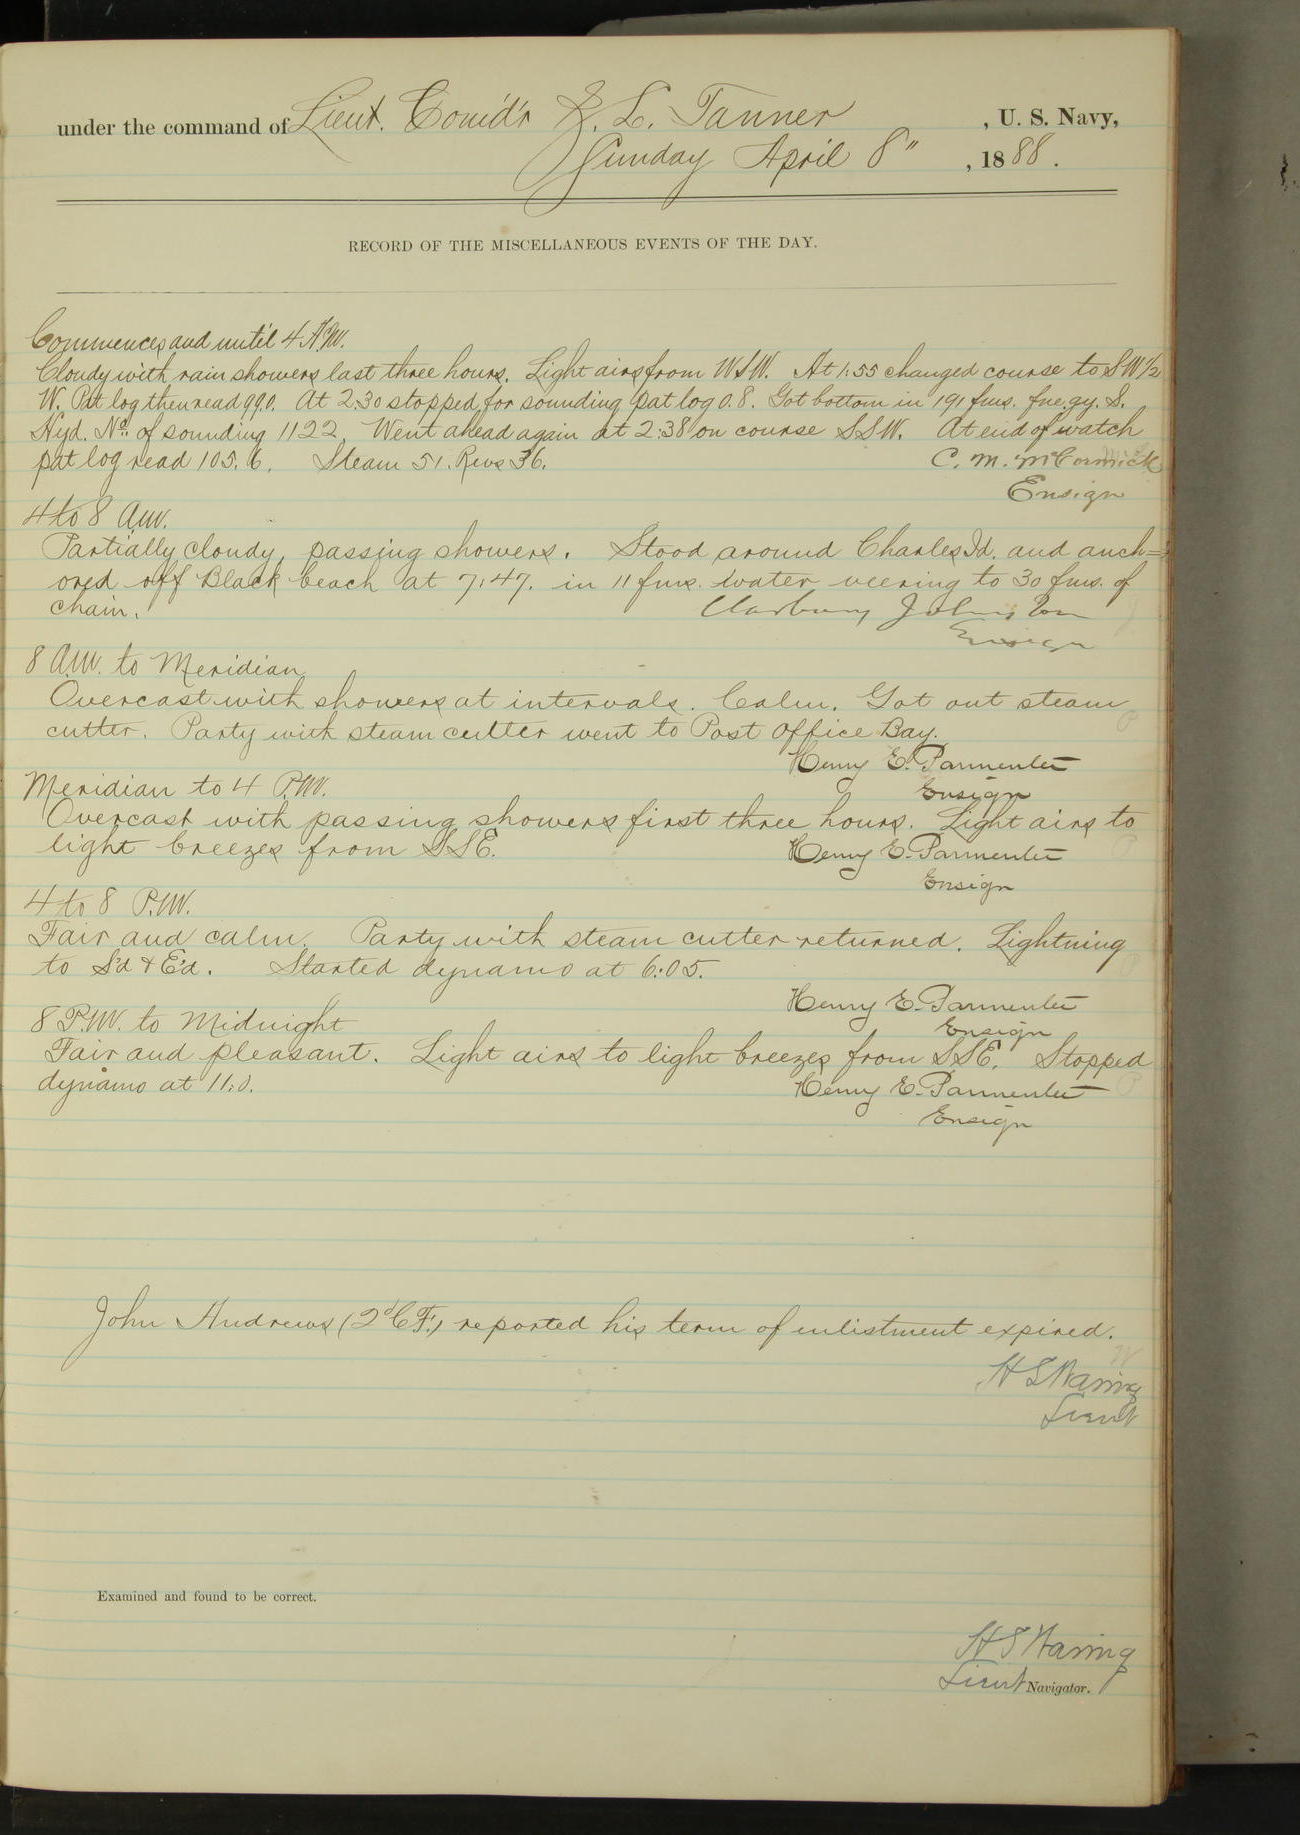 under the command of Lieut. Comd'r Z. L. Tanner, U. S. Navy,
Sunday April 8", 1888.
RECORD OF THE MISCELLANEOUS EVENTS OF THE DAY.
Commences and until 4 A.M.
Cloudy with rain showers last three hours. Light airs from WSW. At 1:55 changed course to SW 1/2
W. Pat log then read 99.0. At 2:30 stopped for sounding pat log 0.8. Got bottom in 191 fms. fne. gy. S.
Hyd. No. of sounding 1122. Went ahead again at 2:38 on course SSW. At end of watch
pat log read 105.6. Steam 51. Revs 36.
C. M. McCormick
Ensign
4 to 8 A.M.
Partially cloudy, passing showers. Stood around Charles Id. and anch=
ored off Black beach at 7:47. in 11 fms. water veering to 30 fms. of
chain.
Marbury Johnston
Ensign
8 A.M. to Meridian
Overcast with showers at intervals. Calm. Got out steam
cutter. Party with steam cutter went to Post Office Bay.
Henry E. Parmenter
Ensign
Meridian to 4 P.M.
Overcast with passing showers first three hours. Light airs to
light breezes from SSE.
Henry E. Parmenter
Ensign
4 to 8 P.M.
Fair and calm. Party with steam cutter returned. Lightning
to S'd & E'd. Started dynamo at 6:05.
Henry E. Parmenter
Ensign
8 P.M. to Midnight
Fair and pleasant. Light airs to light breezes from SSE. Stopped
dynamo at 11:0.
Henry E. Parmenter
Ensign
John Andrews (2d C F.) reported his term of enlistment expired.
H S Waring
Lieut
Examined and found to be correct.
H S Waring
Lieut Navigator.